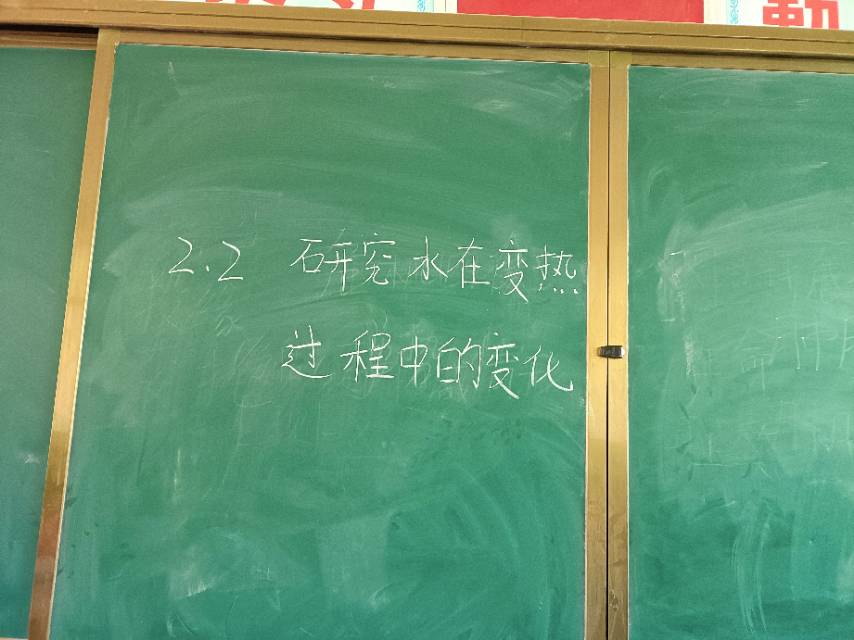 2.2 研究水在变热
过程中的变化